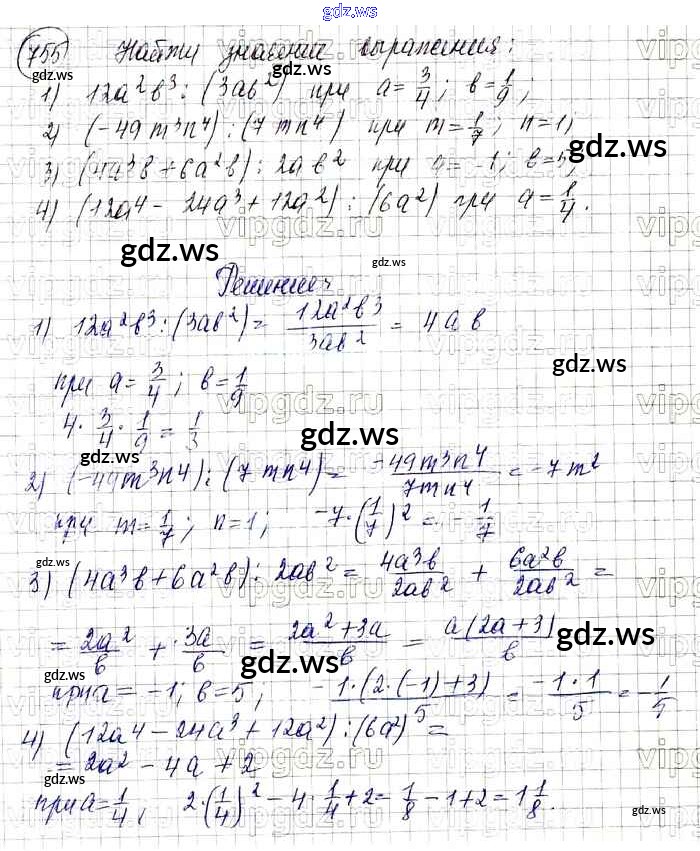 gdz.ws
755 Найти значения выражения:
1) 12a²b³ : (3ab²) при a = 3/4; b = 1/9;
2) (-49m³n⁴) : (7mn⁴) при m = 1/7; n = 1;
gdz.ws
3) (4a³b + 6a²b) : 2ab² при a = -1; b = 5;
4) (12a⁴ - 24a³ + 12a²) : (6a²) при a = 1/4.
gdz.ws
gdz.ws
Решение
1) 12a²b³ : (3ab²) = 12a²b³/3ab² = 4ab
gdz.ws
при a = 3/4; b = 1/9
4 · 3/4 · 1/9 = 1/3
gdz.ws
2) (-49m³n⁴) : (7mn⁴) = -49m³n⁴/7mn⁴ = -7m²
при m = 1/7; n = 1; -7·(1/7)² = -1/7
gdz.ws
3) (4a³b + 6a²b) : 2ab² = 4a³b/2ab² + 6a²b/2ab² =
= 2a²/b + 3a/b = 2a² + 3a/b = a(2a+3)/b
gdz.ws gdz.ws gdz.ws
при a = -1; b = 5; -1·(2·(-1)+3)/5 = -1·1/5 = -1/5
4) (12a⁴ - 24a³ + 12a²) : (6a²) =
= 2a² - 4a + 2
gdz.ws
при a = 1/4, 2·(1/4)² - 4·1/4 + 2 = 1/8 - 1 + 2 = 1 1/8.
gdz.ws
gdz.ws
gdz.ws
vipgdz.ru